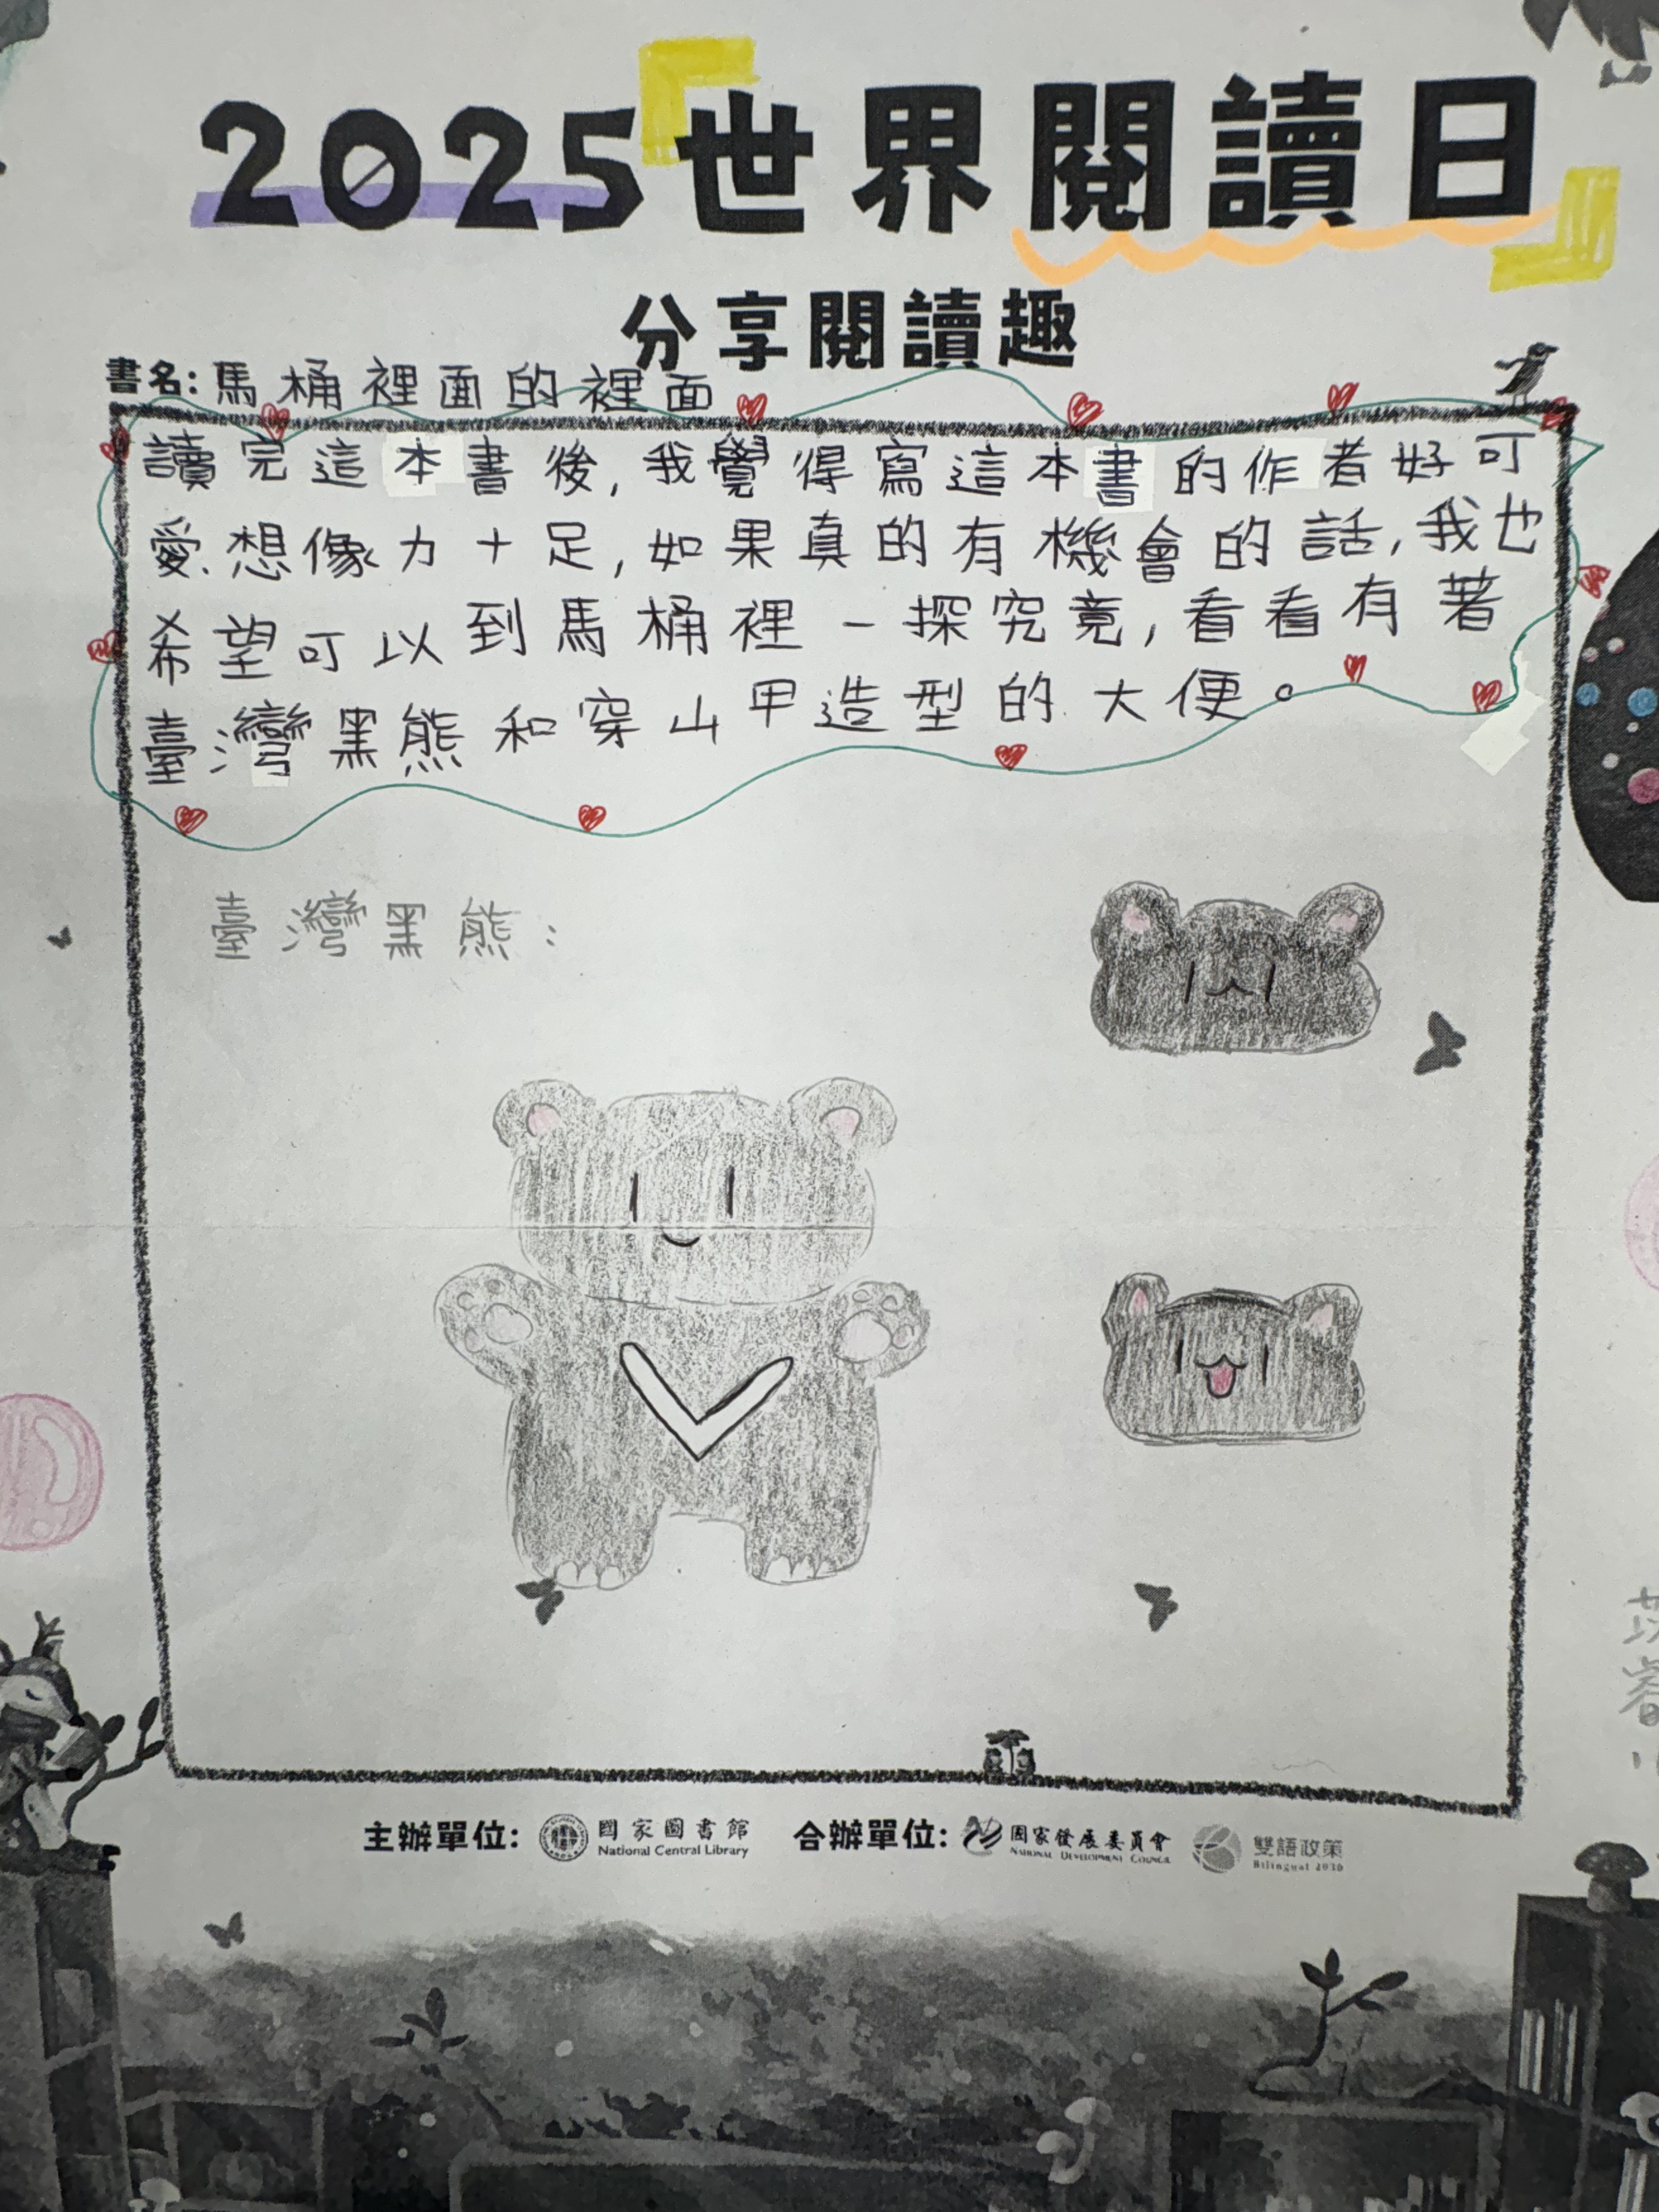 2025世界閱讀日
分享閱讀趣
書名：馬桶裡面的裡面
讀完這本書後，我覺得寫這本書的作者好可
愛、想像力十足，如果真的有機會的話，我也
希望可以到馬桶裡一探究竟，看看有著
臺灣黑熊和穿山甲造型的大便。
臺灣黑熊：
主辦單位： 國家圖書館 National Central Library 合辦單位： 國家發展委員會 National Development Council 雙語政策 Bilingual 2030